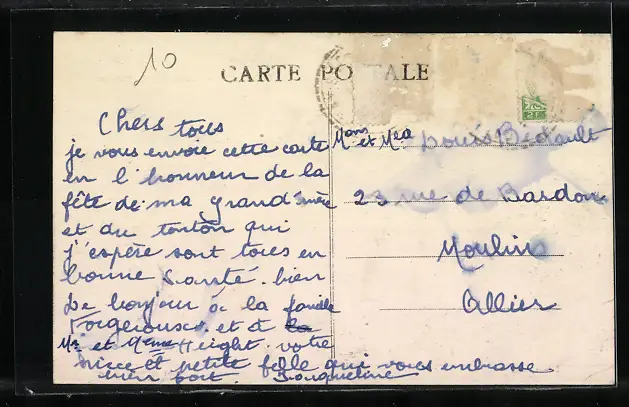 10
CARTE POSTALE
Chers tous
je vous envoie cette carte
en l'honneur de la
fête de ma grand mère
et du tonton qui
j'espère sont tous en
bonne santé. bien
le bonjour à la famille
et à la
Mr et Mme Height. votre
nièce et petite fille qui vous embrasse
bien fort. Jacqueline
et
23 rue de Bardon
Moulins
Allier